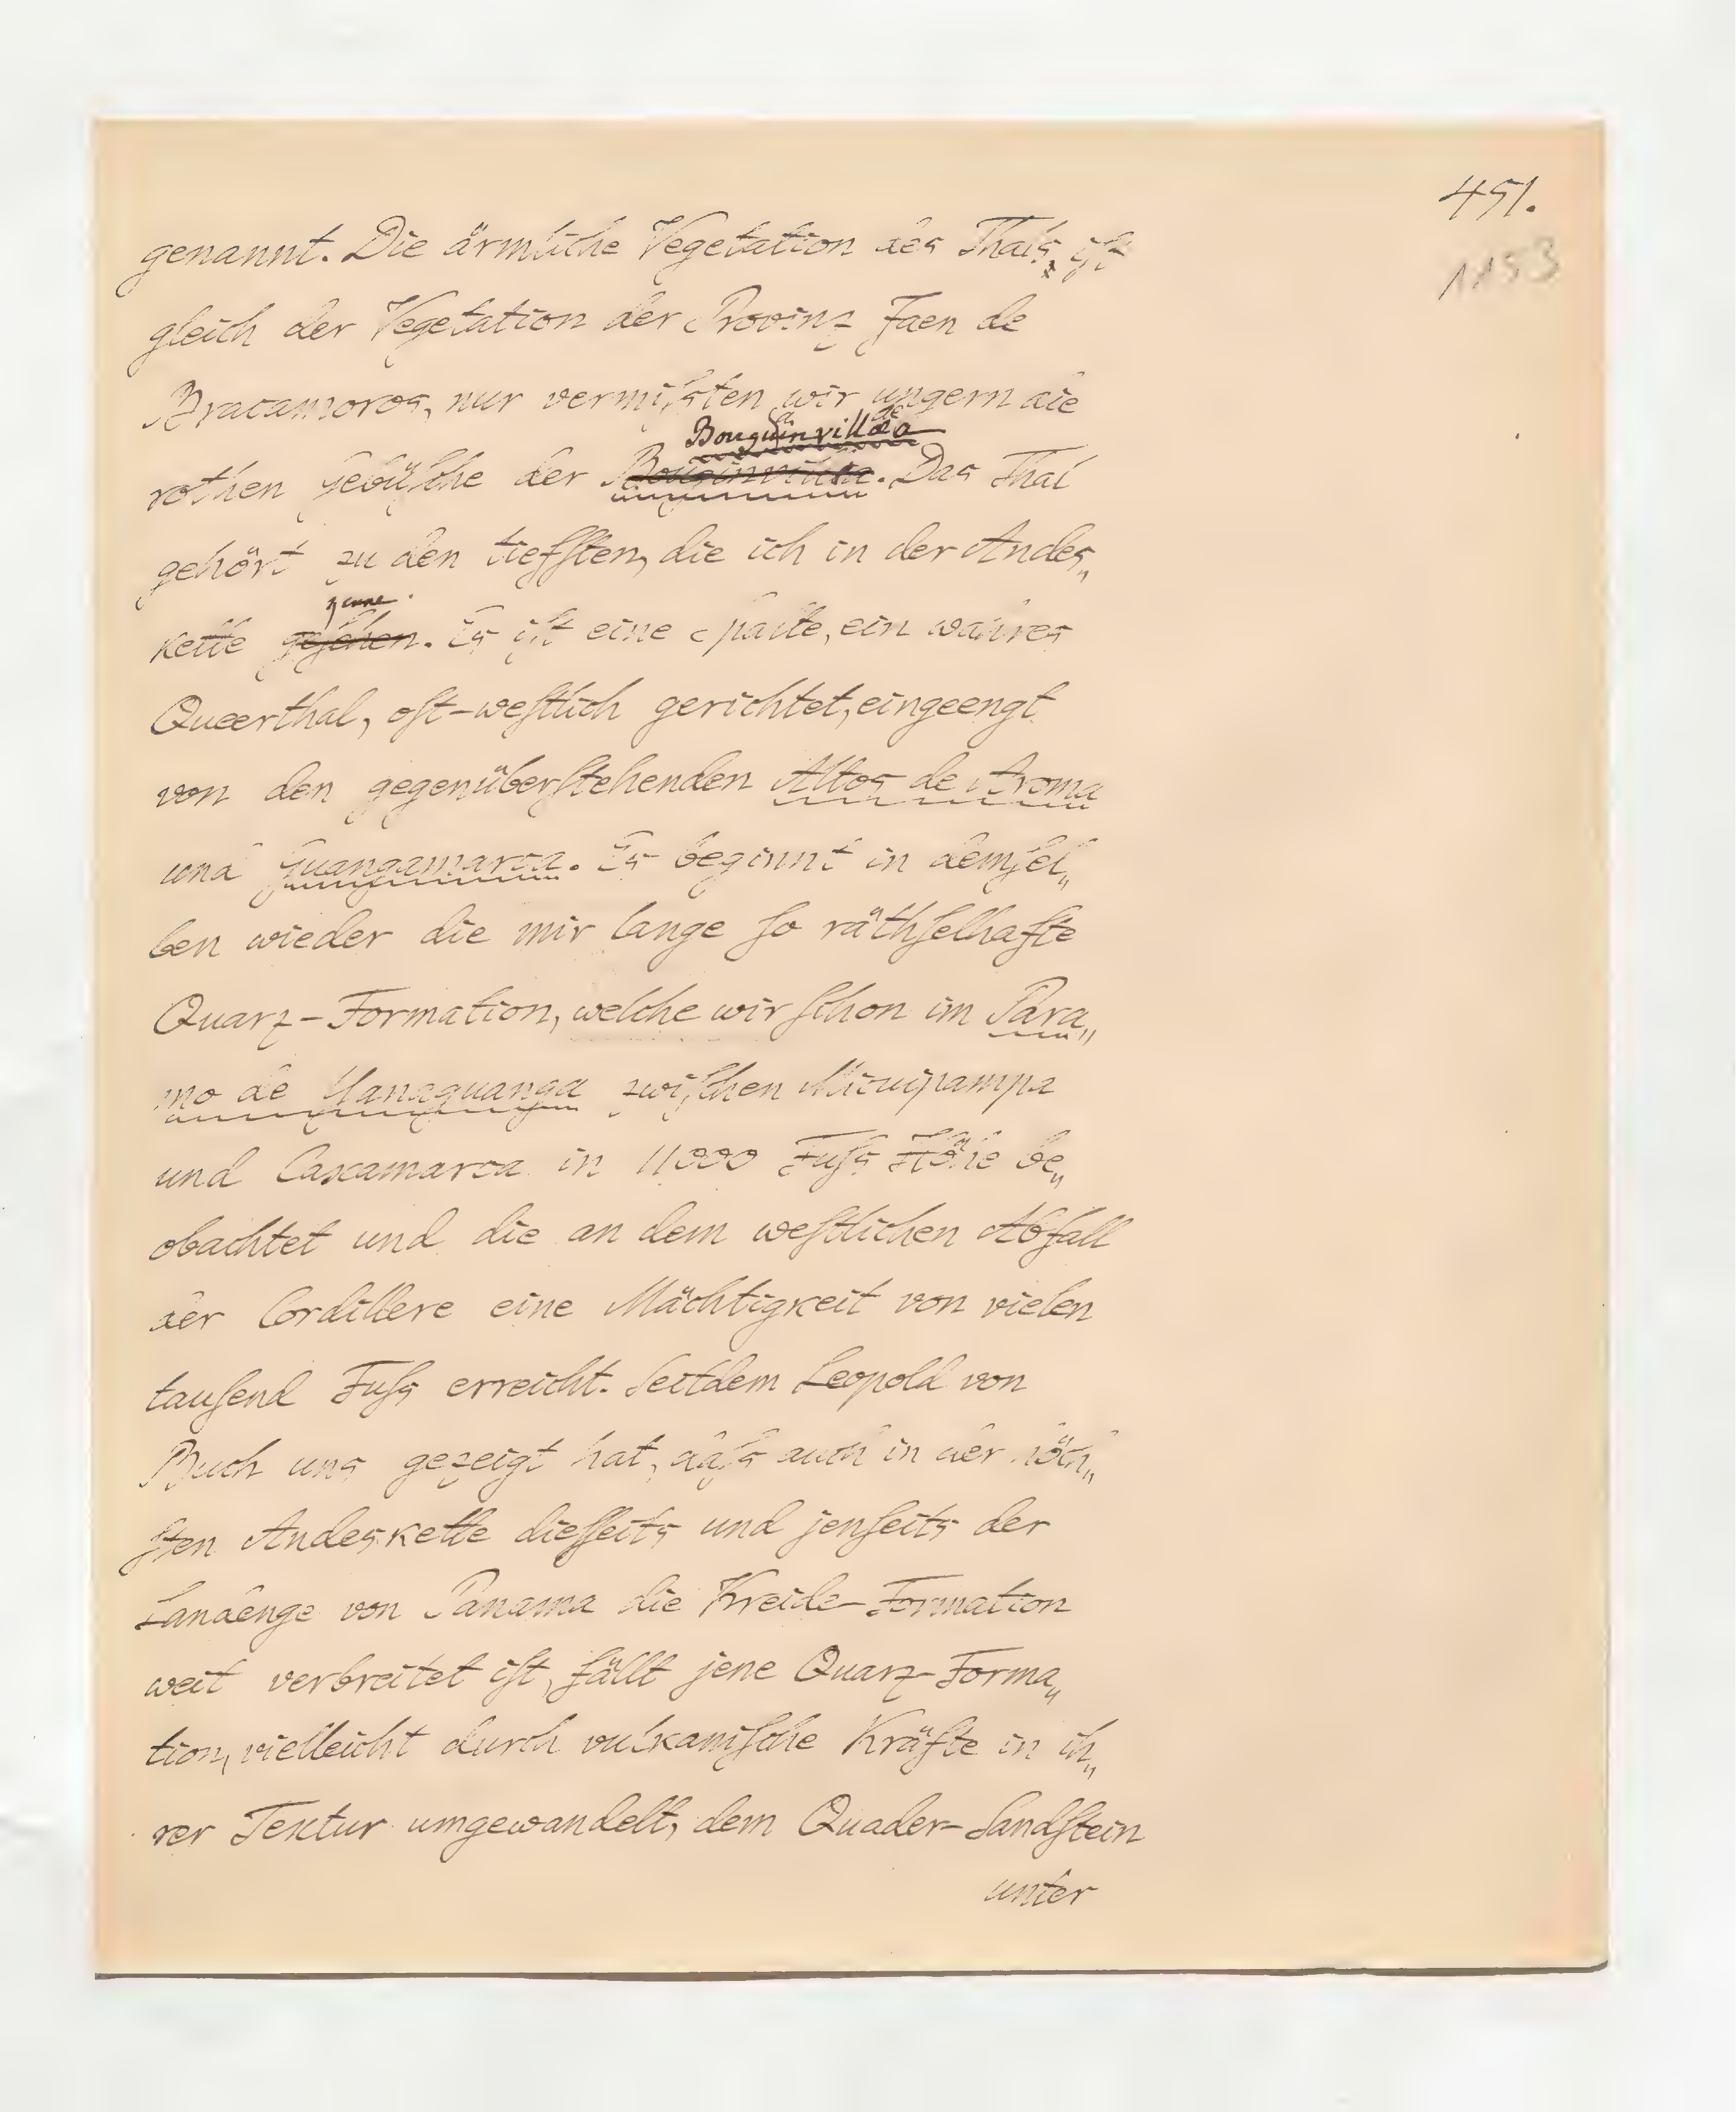 451.
1153
genannt. Die ärmliche Vegetation des Thals ist
gleich der Vegetation der Provinz Jaen de
Bracamoros, nur vermißten wir ungern die
Bouguinvillæa
rothen Gebüsche der Bouginvillæa. Das Thal
gehört zu den tiefsten, die ich in der Andes„
kenne.
kette gesehen. Es ist eine Spalte, ein wahres
Queerthal, ost-westlich gerichtet, eingeengt
von den gegenüberstehenden Altos de Aroma
und Guangamarca. Es beginnt in demsel„
ben wieder die mir lange so räthselhafte
Quarz-Formation, welche wir schon im Para„
mo de Yanaguanga zwischen Micuipampa
und Caxamarca in 11000 Fuß Höhe be„
obachtet und die an dem westlichen Abfall
der Cordillere eine Mächtigkeit von vielen
tausend Fuß erreicht. Seitdem Leopold von
Buch uns gezeigt hat, daß auch in der höch„
sten Andeskette diesseits und jenseits der
Landenge von Panama die Kreide-Formation
weit verbreitet ist, fällt jene Quarz-Forma„
tion, vielleicht durch vulkanische Kräfte in ih„
rer Textur umgewandelt, dem Quader-Sandstein
unter